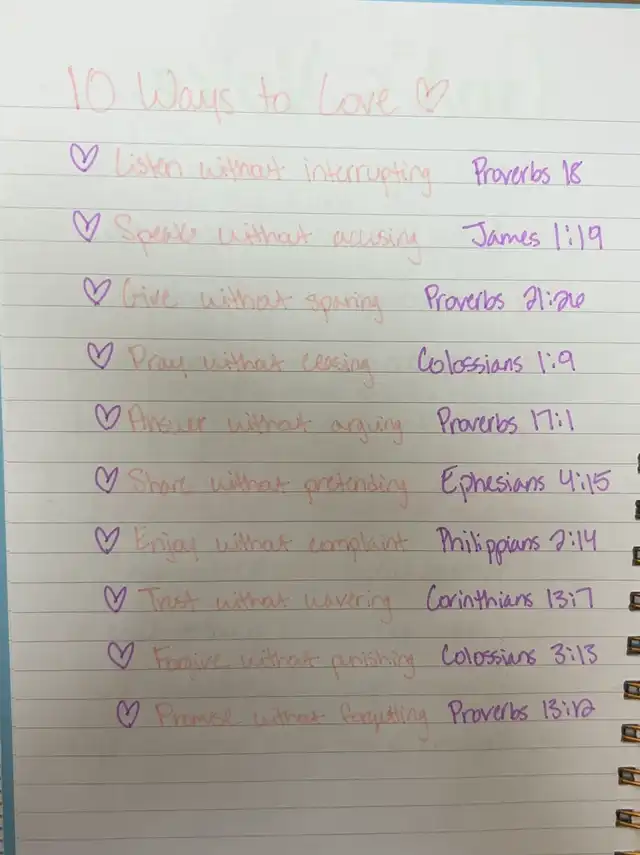 10 Ways to Love ♡
♡ Listen without interrupting Proverbs 18
♡ Speak without accusing James 1:19
♡ Give without sparing Proverbs 21:26
♡ Pray without ceasing Colossians 1:9
♡ Answer without arguing Proverbs 17:1
♡ Share without pretending Ephesians 4:15
♡ Enjoy without complaint Philippians 2:14
♡ Trust without wavering Corinthians 13:7
♡ Forgive without punishing Colossians 3:13
♡ Promise without forgetting Proverbs 13:12